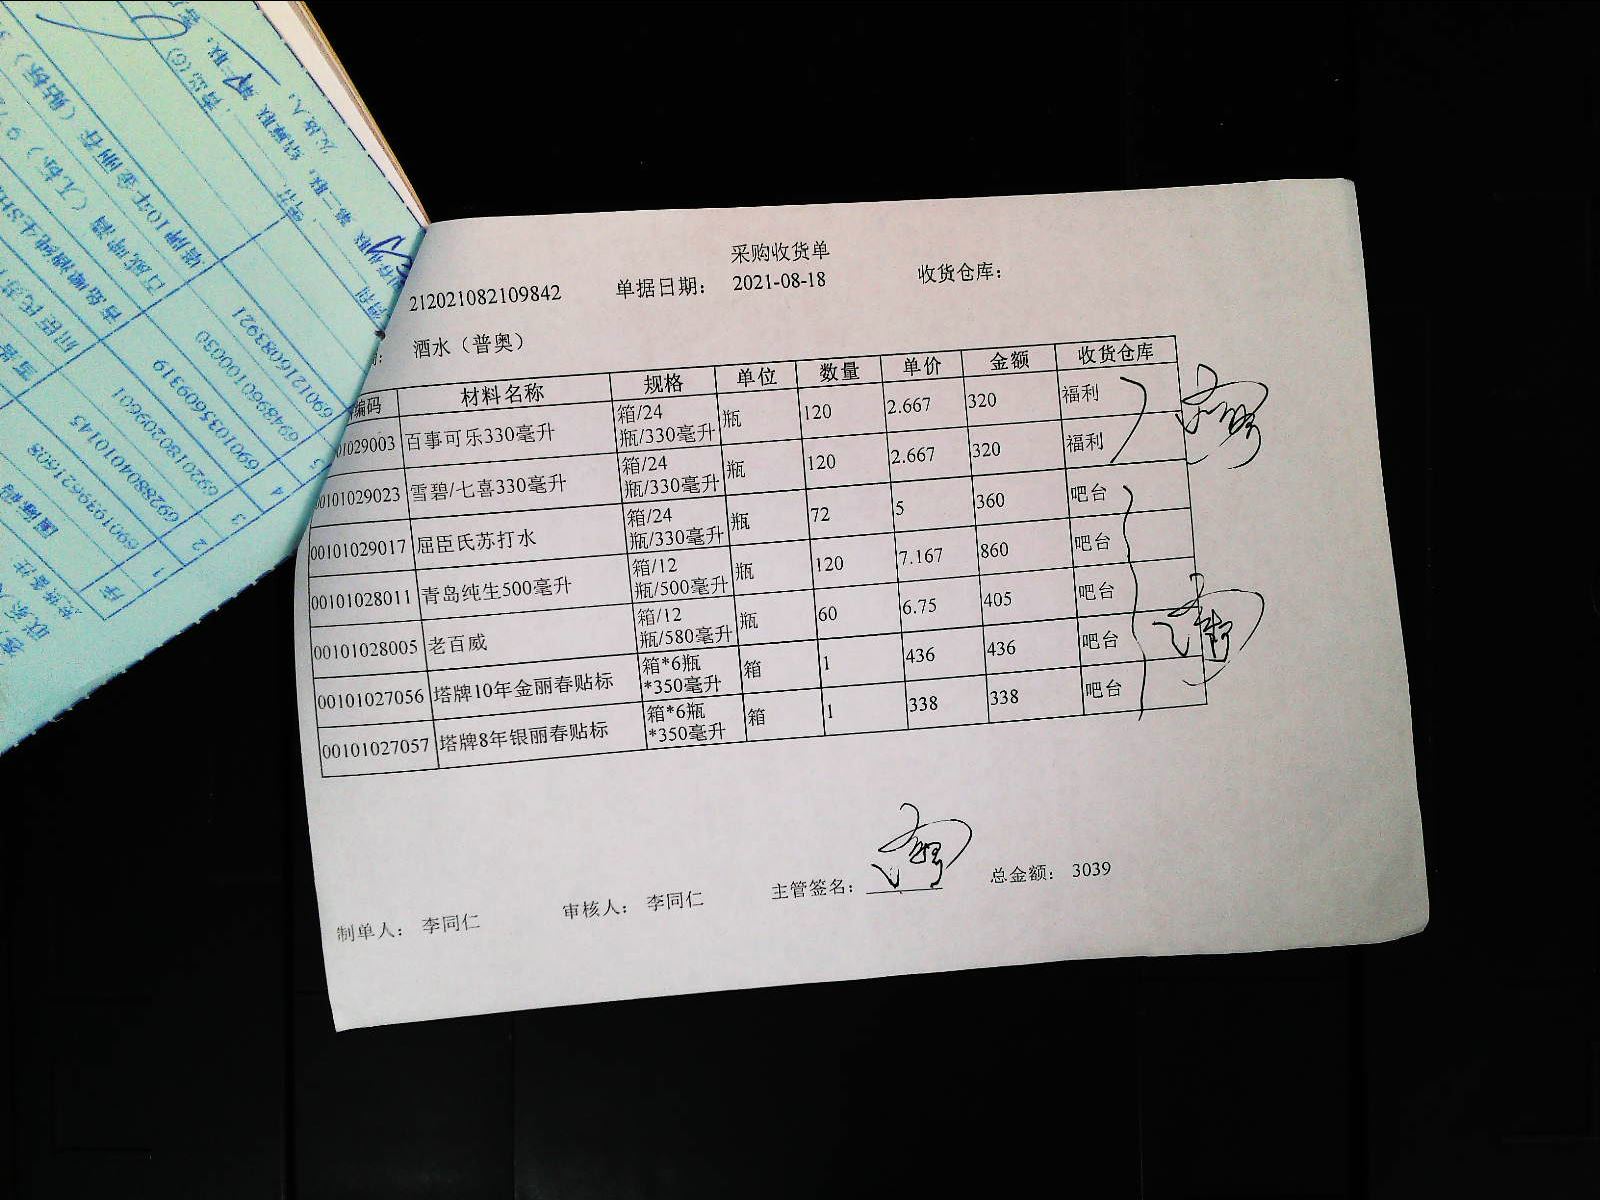 采购收货单
212021082109842 单据日期： 2021-08-18 收货仓库：
酒水（普奥）
编码 材料名称 规格 单位 数量 单价 金额 收货仓库
01029003 百事可乐330毫升 箱/24瓶/330毫升 瓶 120 2.667 320 福利
00101029023 雪碧/七喜330毫升 箱/24瓶/330毫升 瓶 120 2.667 320 福利
00101029017 屈臣氏苏打水 箱/24瓶/330毫升 瓶 72 5 360 吧台
00101028011 青岛纯生500毫升 箱/12瓶/500毫升 瓶 120 7.167 860 吧台
00101028005 老百威 箱/12瓶/580毫升 瓶 60 6.75 405 吧台
00101027056 塔牌10年金丽春贴标 箱*6瓶*350毫升 箱 1 436 436 吧台
00101027057 塔牌8年银丽春贴标 箱*6瓶*350毫升 箱 1 338 338 吧台
制单人： 李同仁 审核人： 李同仁 主管签名： 总金额： 3039
序 国际码
1 6901939621608
2 6928804010145
3 6920180209601
4 6901035609319
5 6948960100030
6901216083921
塔牌10年金丽春（贴标）